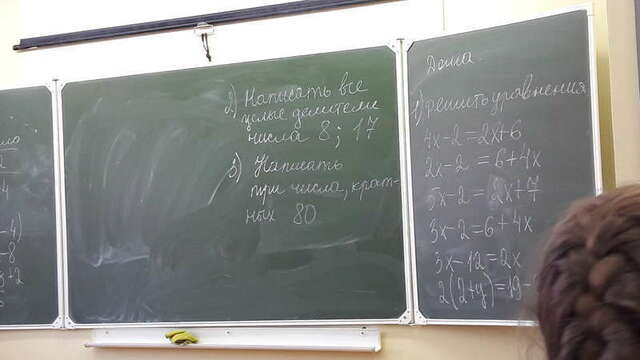 Дома
1) решить уравнения
4x-2=2x+6
2x-2=6+4x
5x-2=2x+7
3x-2=6+4x
3x-12=2x
2(2+y)=19-
2) Написать все
целые делители
числа 8; 17
3) Написать
три числа, крат-
ных 80